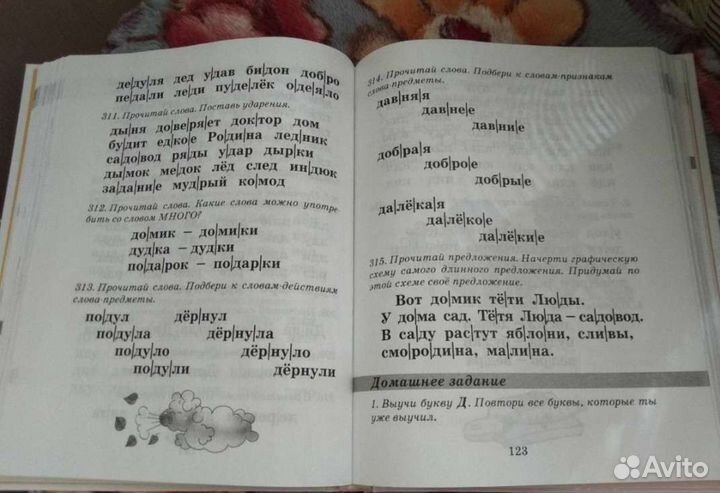 де|ду|ля дед у|дав би|дон доб|ро
пе|да|ли ле|ди пу|де|лёк о|де|я|ло
311. Прочитай слова. Поставь ударения.
ды|ня до|ве|ря|ет док|тор дом
бу|дит ед|ко|е Ро|ди|на лед|ник
са|до|вод ря|ды у|дар дыр|ки
ды|мок ме|док лёд след ин|дюк
за|да|ни|е муд|рый ко|мод
312. Прочитай слова. Какие слова можно употре-
бить со словом МНОГО?
до|мик – до|ми|ки
дуд|ка – дуд|ки
по|да|рок – по|дар|ки
313. Прочитай слова. Подбери к словам-действиям
слова-предметы.
по|дул дёр|нул
по|ду|ла дёр|ну|ла
по|ду|ло дёр|ну|ло
по|ду|ли дёрнули
314. Прочитай слова. Подбери к словам-признакам
слова-предметы.
дав|ня|я
дав|не|е
дав|ни|е
доб|ра|я
доб|ро|е
доб|ры|е
да|лё|ка|я
да|лё|ко|е
да|лё|ки|е
315. Прочитай предложения. Начерти графическую
схему самого длинного предложения. Придумай по
этой схеме своё предложение.
Вот до|мик тё|ти Лю|ды.
У до|ма сад. Тё|тя Лю|да – са|до|вод.
В са|ду рас|тут яб|ло|ни, сли|вы,
смо|ро|ди|на, ма|ли|на.
Домашнее задание
1. Выучи букву Д. Повтори все буквы, которые ты
уже выучил.
123
Avito